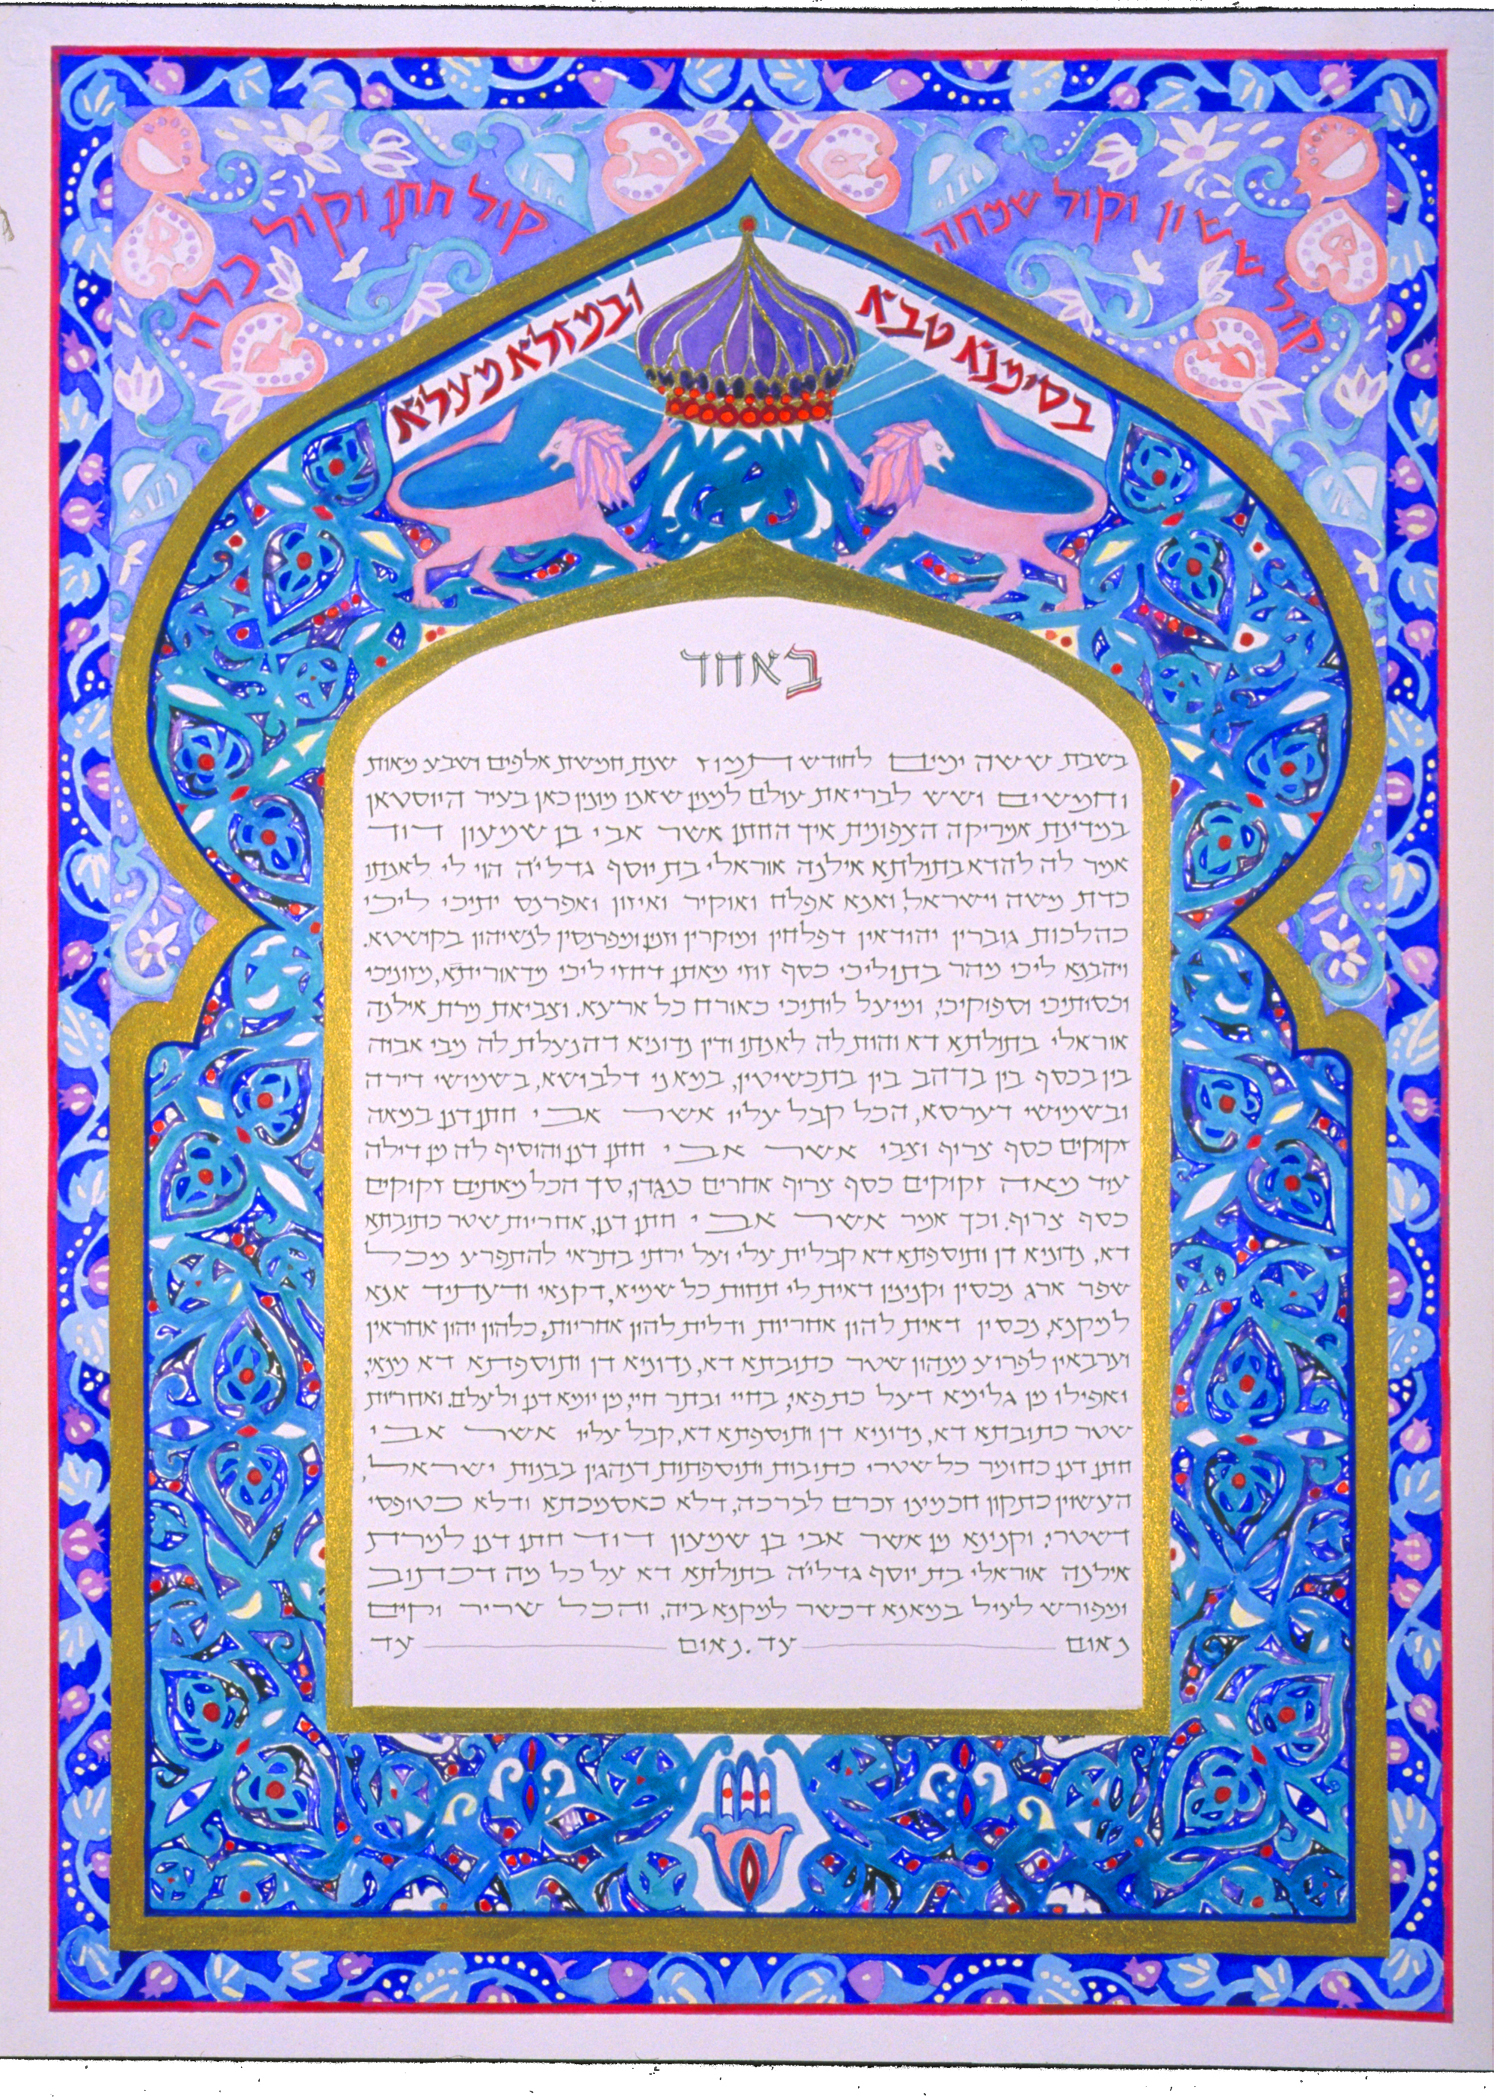 קול ששון וקול שמחה
קול חתן וקול כלה
בסימנא טבא
ובמזלא מעליא
באחד
בשבת ששה ימים לחודש תמוז שנת חמשת אלפים ושבע מאות
וחמשים ושש לבריאת עולם למנין שאנו מונין כאן בעיר היוסטאן
במדינת אמריקה הצפונית איך החתן אשר אבי בן שמעון דוד
אמר לה להדא בתולתא אילנה אוראלי בת יוסף גדליה הוי לי לאנתו
כדת משה וישראל, ואנא אפלח ואוקיר ואיזון ואפרנס יתיכי ליכי
כהלכות גוברין יהודאין דפלחין ומוקרין וזנין ומפרנסין לנשיהון בקושטא.
ויהבנא ליכי מהר בתוליכי כסף זוזי מאתן דחזי ליכי מדאוריתא, מזוניכי
וכסותיכי וספוקיכי, ומיעל לותיכי כאורח כל ארעא. וצביאת מרת אילנה
אוראלי בתולתא דא והות לה לאנתו ודין נדוניא דהנעלת לה מבי אבוה
בין בכסף בין בדהב בין בתכשיטין, במאני דלבושא, בשמושי דירה
ובשמושי דערסא, הכל קבל עליו אשר אבי חתן דנן במאה
זקוקים כסף צרוף וצבי אשר אבי חתן דנן והוסיף לה מן דילה
עוד מאה זקוקים כסף צרוף אחרים כנגדן, סך הכל מאתים זקוקים
כסף צרוף. וכך אמר אשר אבי חתן דנן, אחריות שטר כתובתא
דא, נדוניא דן ותוספתא דא קבלית עלי ועל ירתי בתראי להתפרע מכל
שפר ארג נכסין וקנינין דאית לי תחות כל שמיא, דקנאי ודעתיד אנא
למקנא, נכסין דאית להון אחריות ודלית להון אחריות, כלהון יהון אחראין
וערבאין לפרוע מנהון שטר כתובתא דא, נדוניא דן ותוספתא דא מנאי,
ואפילו מן גלימא דעל כתפאי, בחיי ובתר חיי, מן יומא דנן ולעלם. ואחריות
שטר כתובתא דא, נדוניא דן ותוספתא דא, קבל עליו אשר אבי
חתן דנן כחומר כל שטרי כתובות ותוספתות דנהגין בבנות ישראל,
העשוין כתקון חכמינו זכרם לברכה, דלא כאסמכתא ודלא כטופסי
דשטרי. וקנינא מן אשר אבי בן שמעון דוד חתן דנן למרת
אילנה אוראלי בת יוסף גדליה בתולתא דא על כל מה דכתוב
ומפורש לעיל במאנא דכשר למקנא ביה, והכל שריר וקים
נאום עד. נאום עד